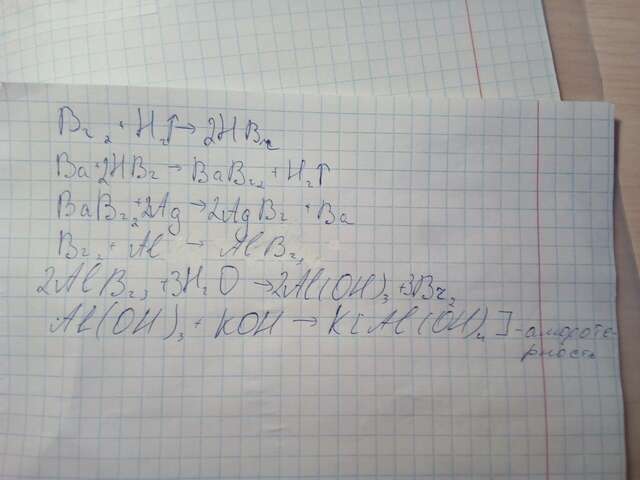 Br₂ + H₂↑ → 2HBr
Ba + 2HBr → BaBr₂ + H₂↑
BaBr₂ + 2Ag → 2AgBr + Ba
Br₂ + Al → AlBr₃
2AlBr₃ + 3H₂O → 2Al(OH)₃ + 3Br₂
Al(OH)₃ + KOH → K[Al(OH)₄] - амфоте-
рность